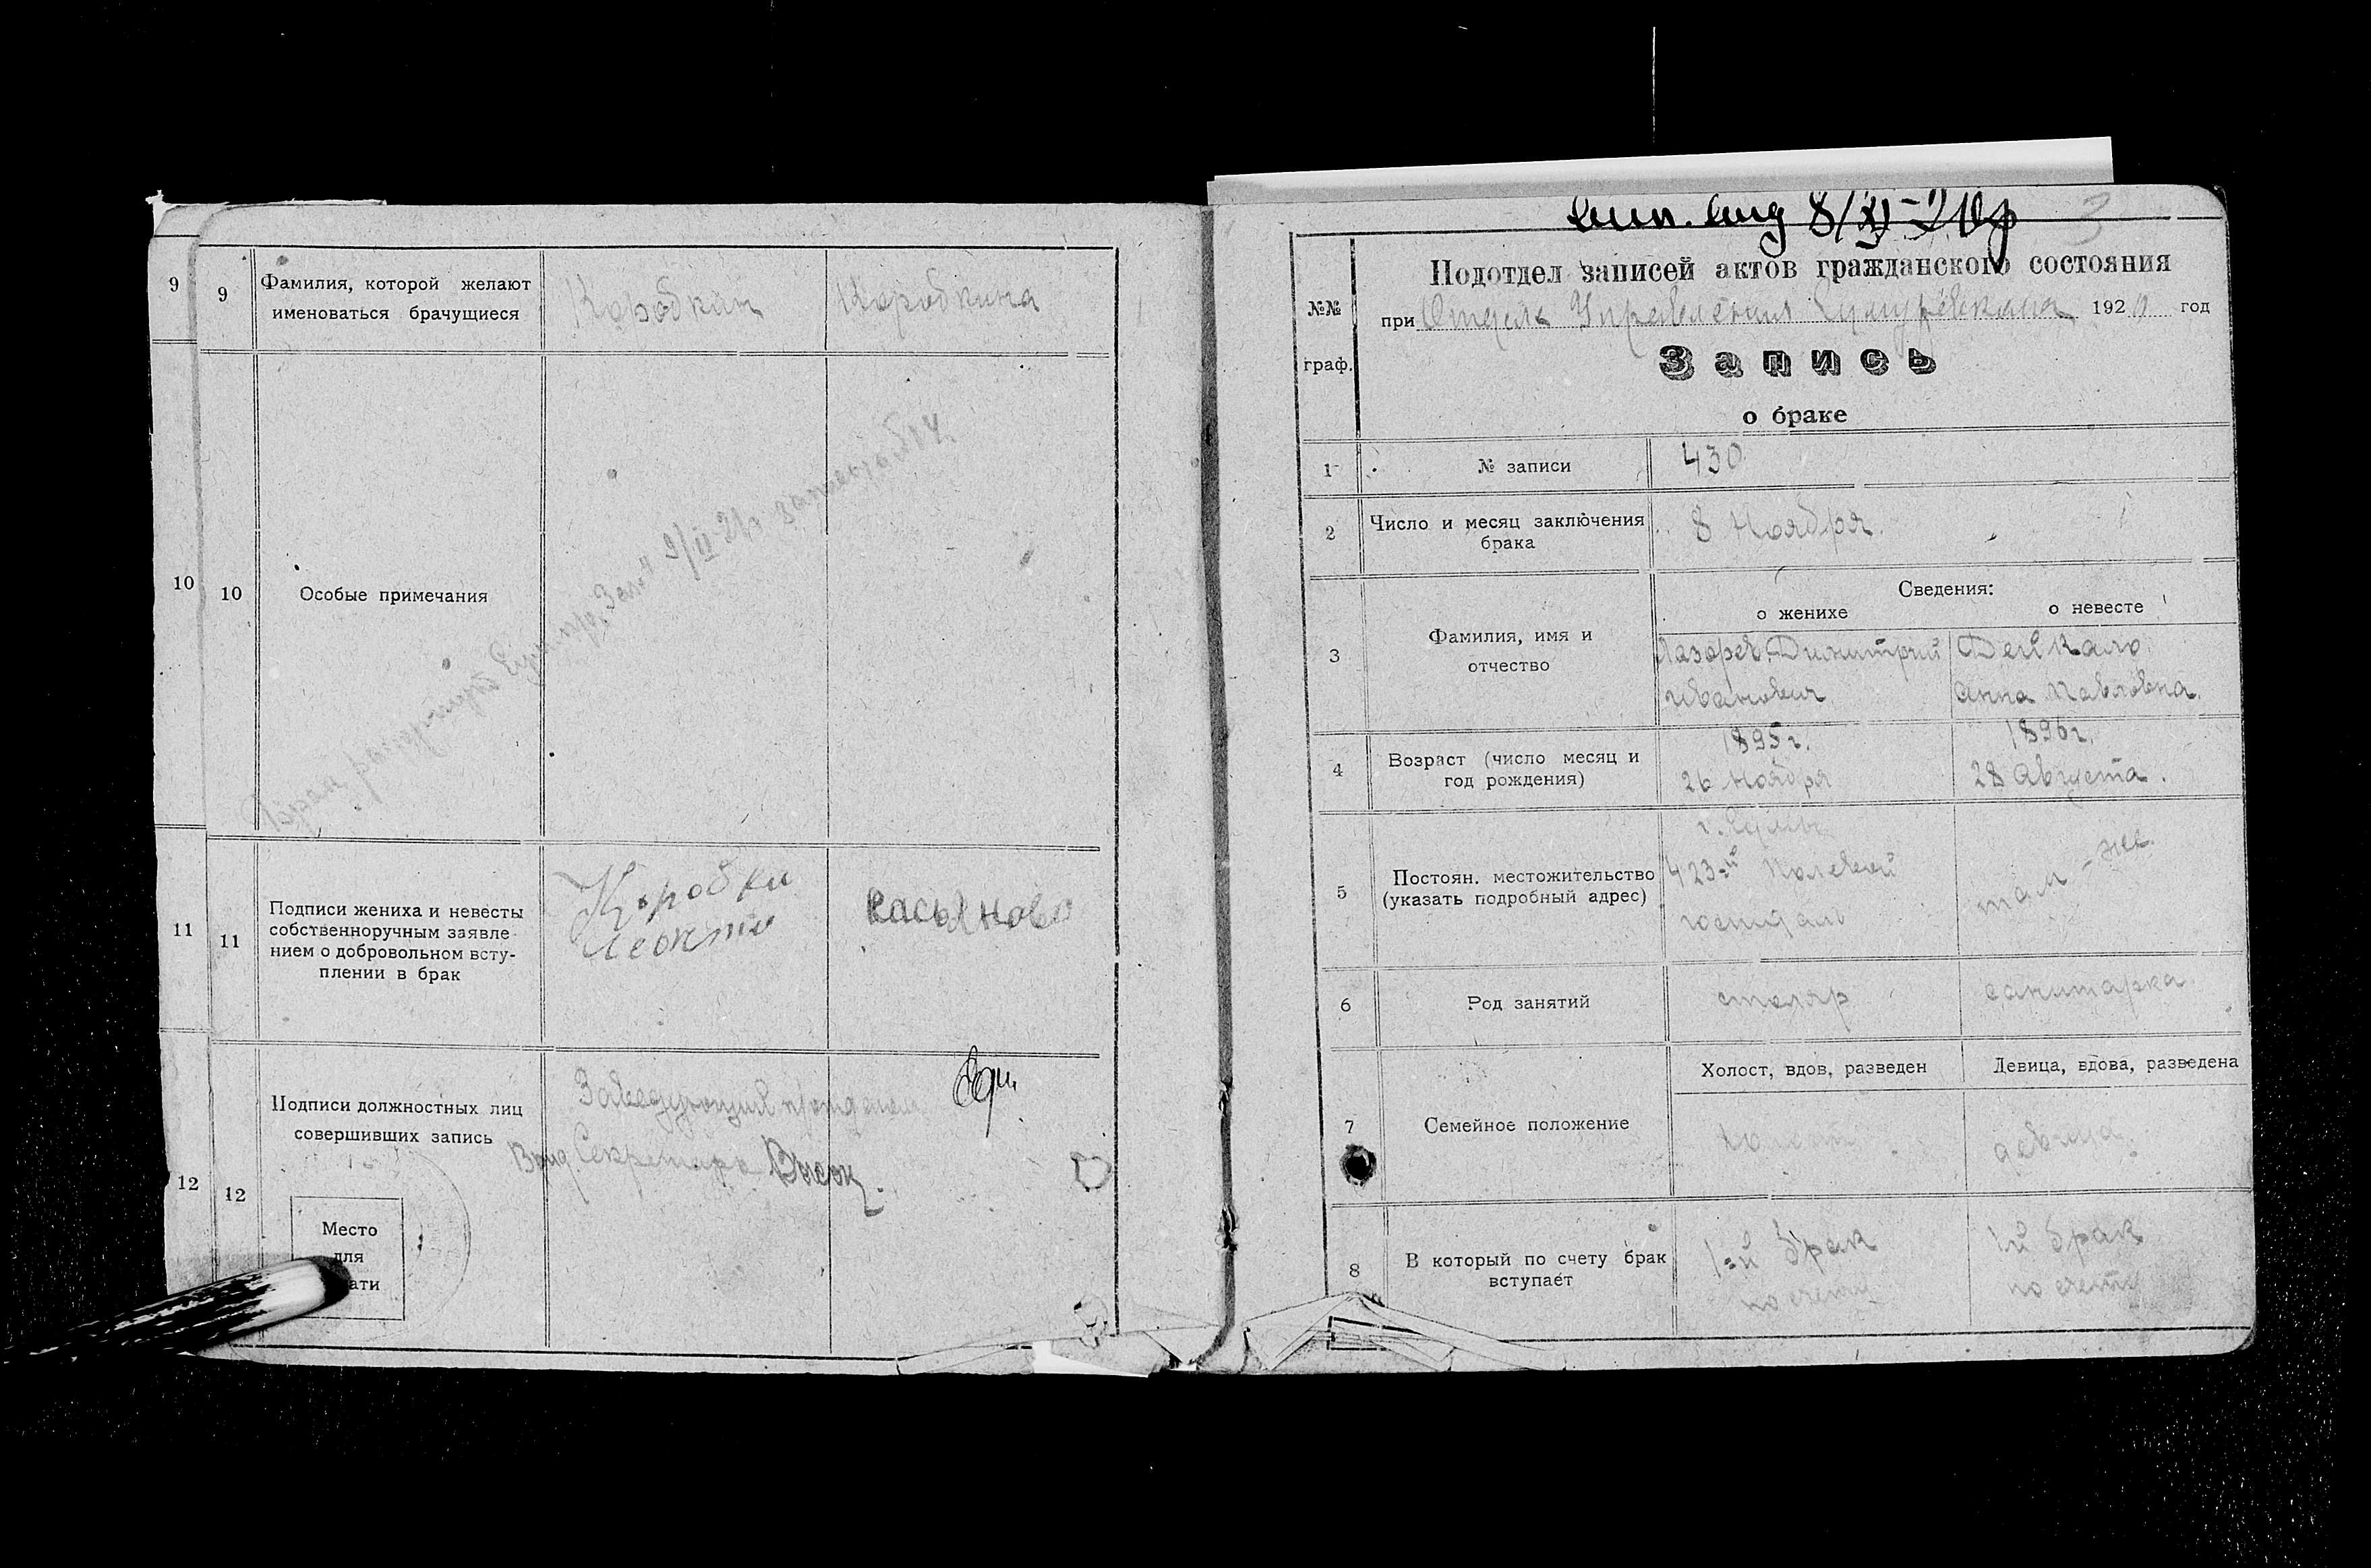 9
9
Фамилия, которой желают
именоваться брачущиеся
Коробкин
Коробкина
10
10
Особые примечания
11
11
Подписи жениха и невесты
собственноручным заявле-
нием о добровольном всту-
плении в брак
Коробки
Леонти
Касьянова
12
12
Подписи должностных лиц
совершивших запись
Заведующий
Секретаря
Место
для
ати
8/XI
3
№№
граф.
Подотдел записей актов гражданского состояния
при Отделе Управления 1920 год
Запись
о браке
1 № записи 430
2 Число и месяц заключения
брака
8 Ноября.
Сведения:
о женихе о невесте
3 Фамилия, имя и
отчество
Димитрий
Иванович
Дейкало
Анна Павловна.
4 Возраст (число месяц и
год рождения)
1895 г.
26 Ноября
1896 г.
28 Августа.
5 Постоян. местожительство
(указать подробный адрес)
423-й Полевой
госпиталь
там-же.
6 Род занятий
столяр
санитарка.
7 Семейное положение
Холост, вдов, разведен
Девица, вдова, разведена
холост
девица.
8 В который по счету брак
вступает
1-й брак
по счету
1й брак
по счету